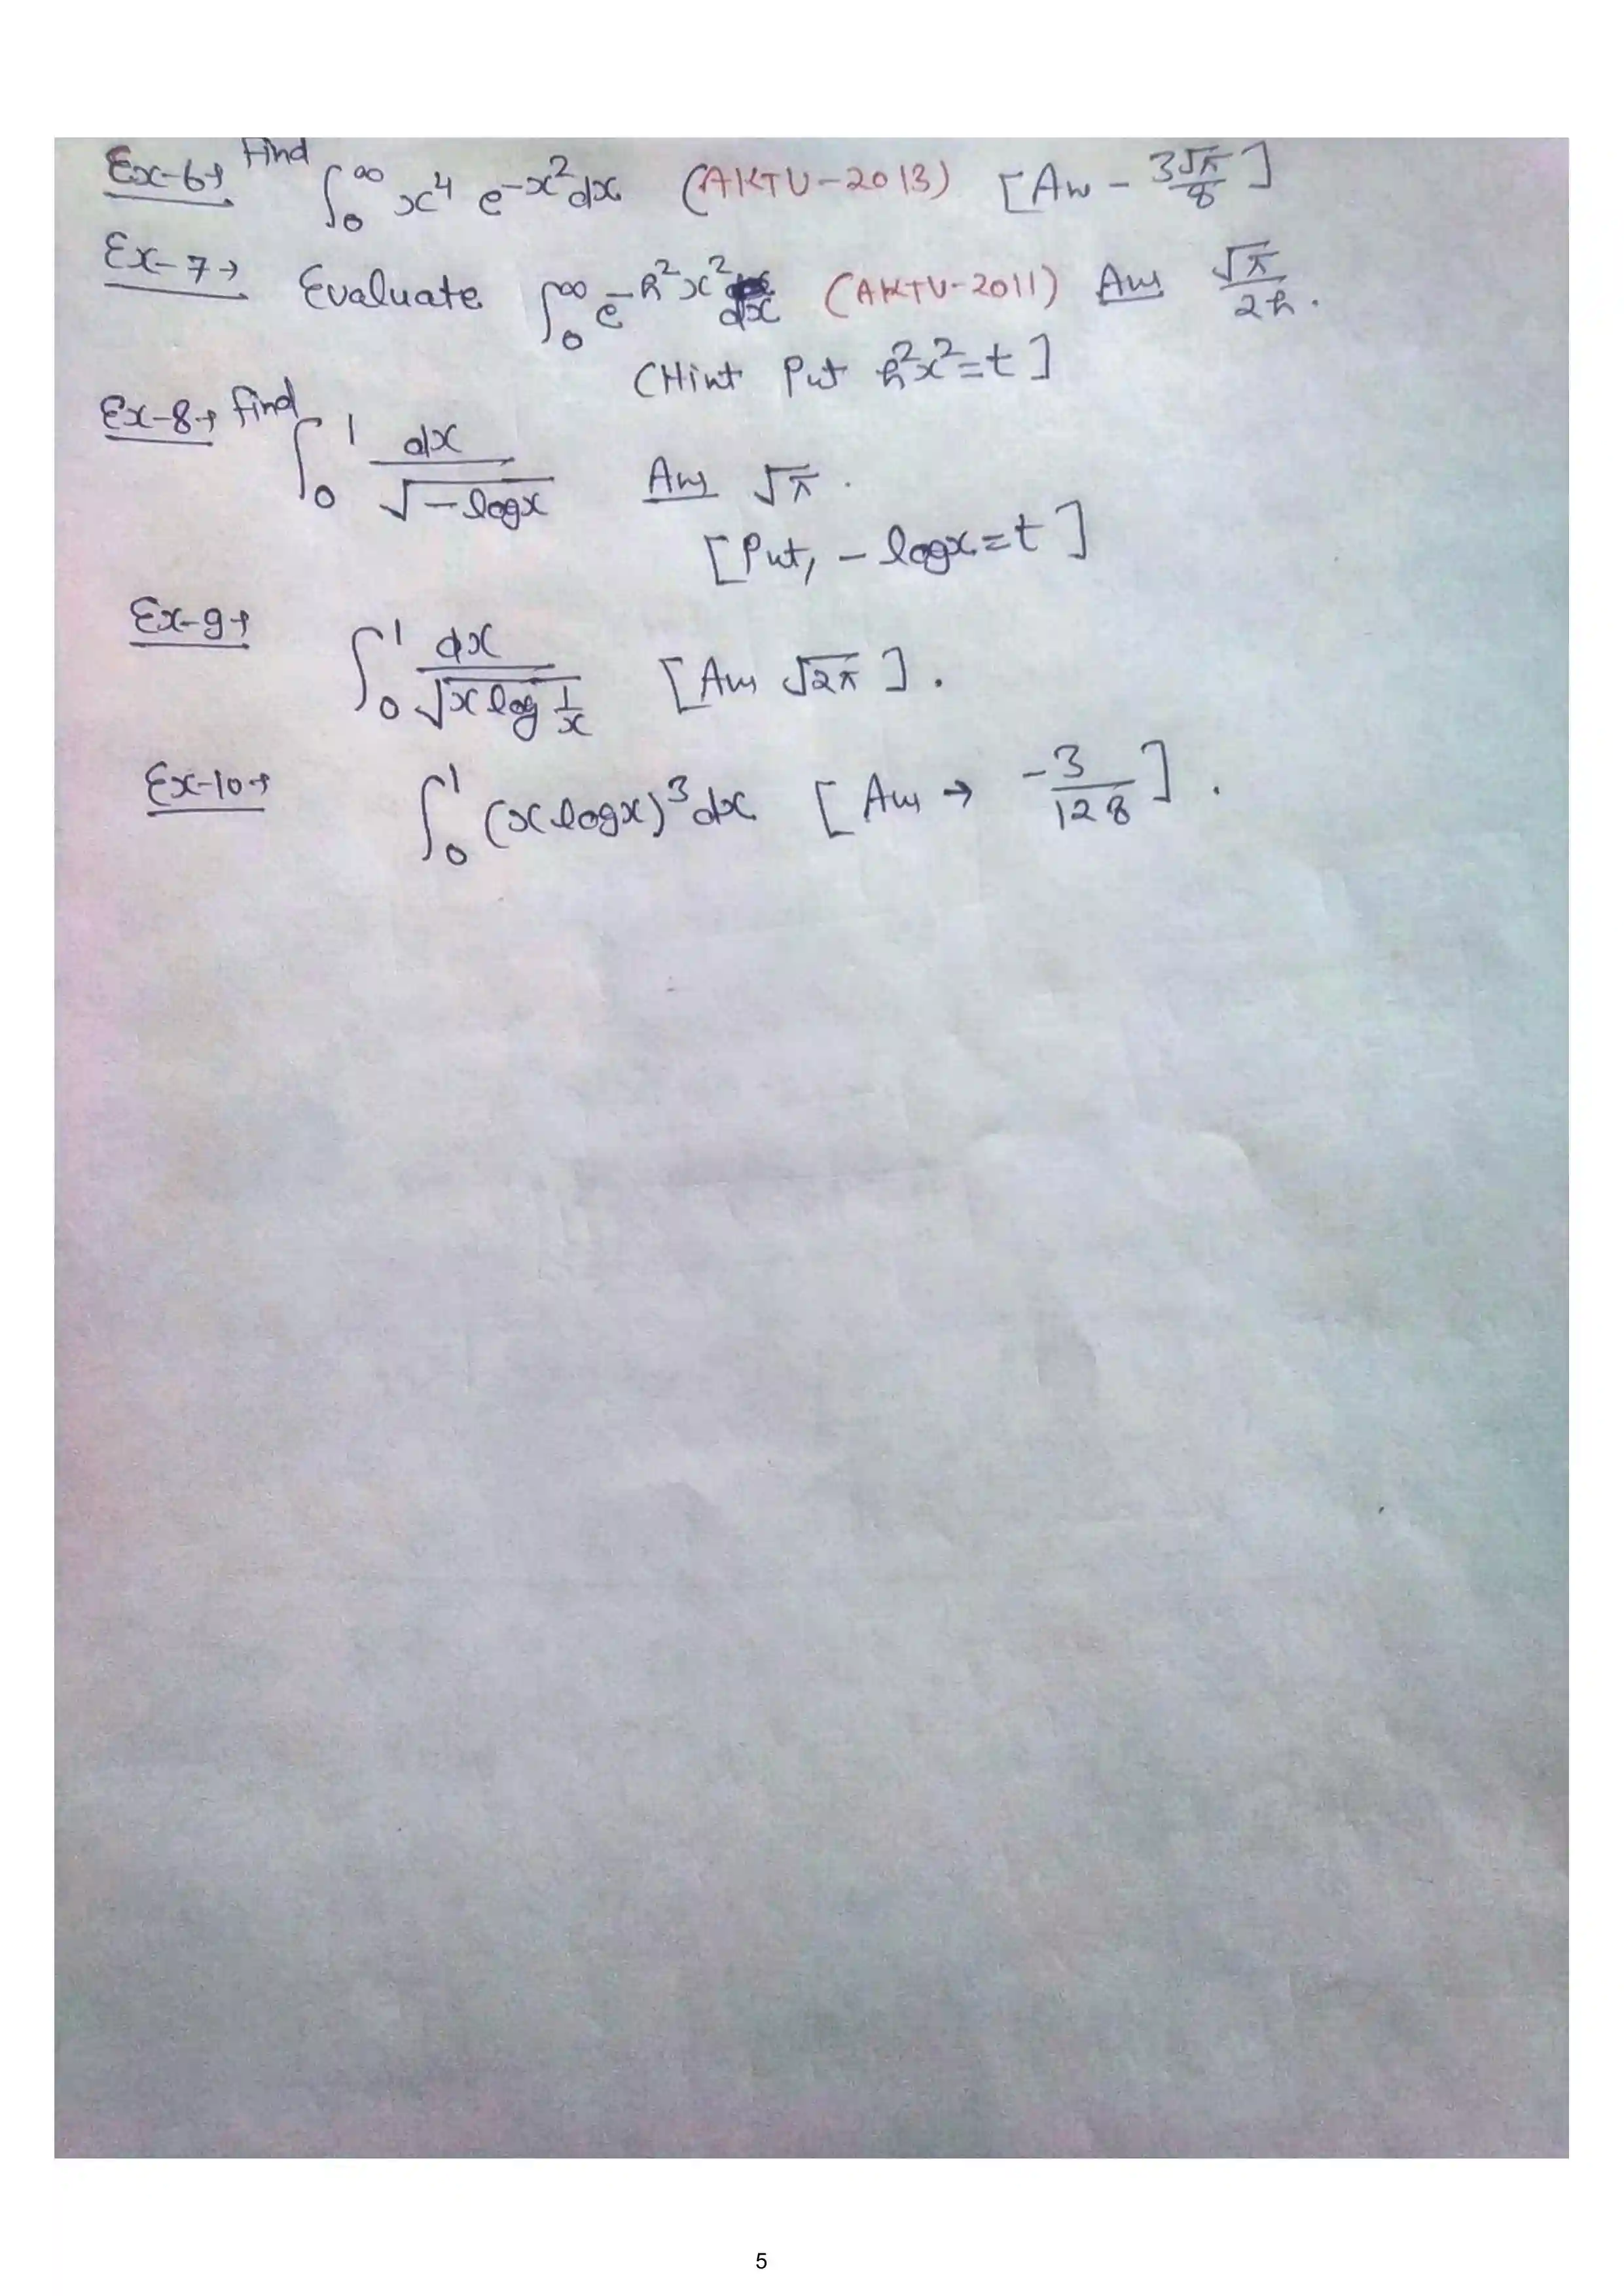 Ex-6→ Find ∫₀^∞ x⁴ e^(-x²) dx (AKTU-2013) [Ans - 3√π/8]
Ex-7→ Evaluate ∫₀^∞ e^(-h²x²) dx (AKTU-2011) Ans √π/2h.
(Hint Put h²x²=t]
Ex-8→ find ∫₀^1 dx/√(-logx) Ans √π.
[Put, -logx=t]
Ex-9→ ∫₀^1 dx/√(x log 1/x) [Ans √2π].
Ex-10→ ∫₀^1 (x logx)³dx [Ans → -3/128].
5